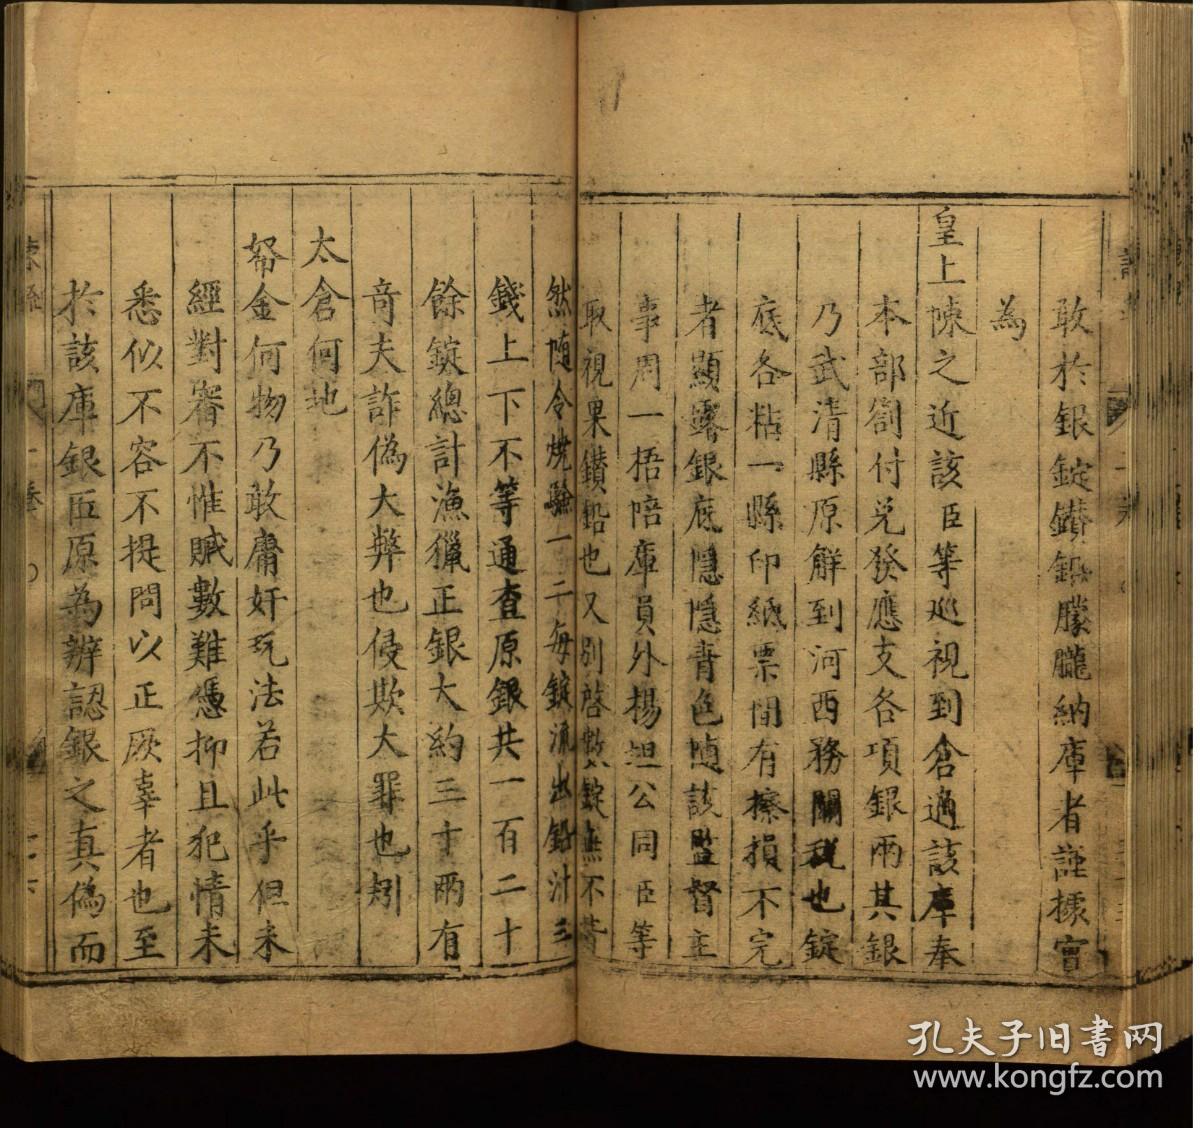 敢於銀錠鑽鉛朦朧納庫者謹據實
為
皇上陳之近該臣等巡視到倉適該庫奉
本部劄付兌發應支各項銀兩其銀
乃武清縣原解到河西務關稅也錠
底各粘一縣印紙票間有擦損不完
者顯露銀底隱隱青色隨該監督主
事周一梧陪庫員外楊 公同臣等
取視果鑽鉛也又別啓數錠無不皆
然隨令燒驗一二每錠流出鉛汁三
錢上下不等通查原銀共一百二十
餘錠總計漁獵正銀大約三十兩有
奇夫詐偽大弊也侵欺大罪也矧
太倉何地
帑金何物乃敢肅奸玩法若此乎但未
經對審不惟贓數難憑抑且犯情未
悉似不容不提問以正厥辜者也至
於該庫銀臣原為辦認銀之真偽而
孔夫子旧书网
www.kongfz.com